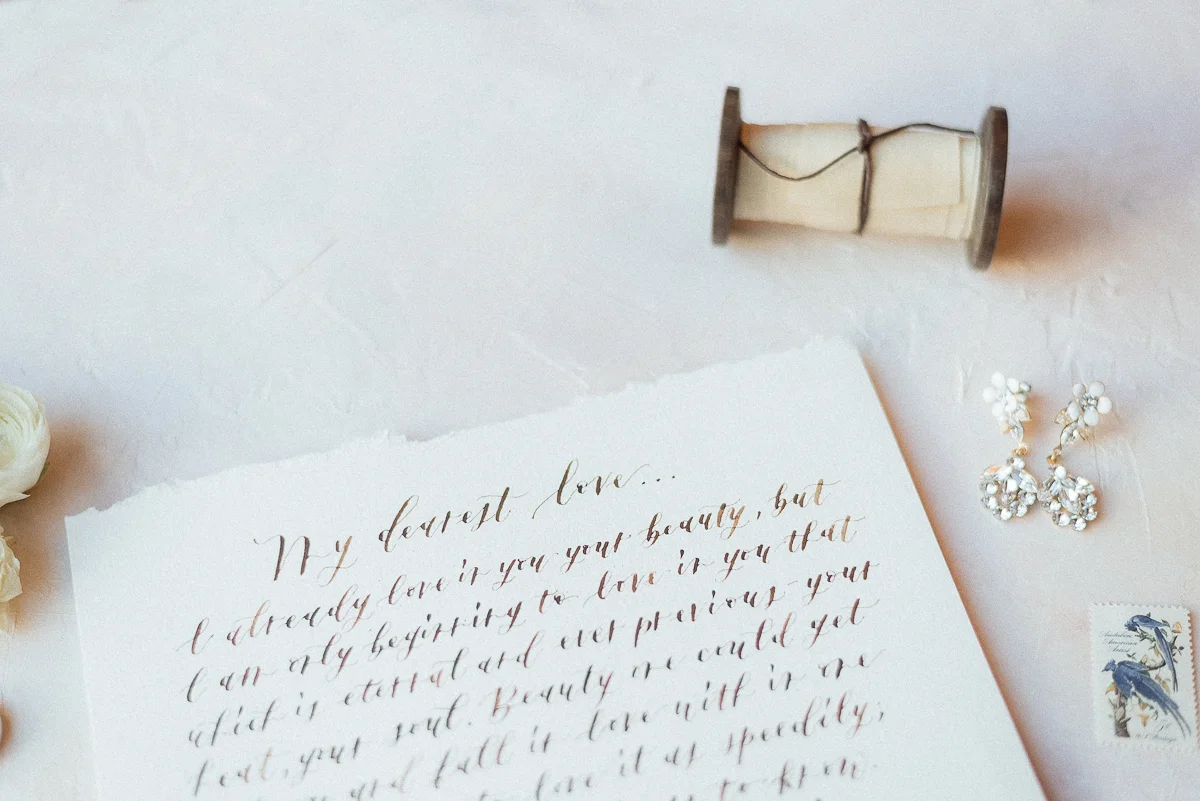 My dearest love...
I already love in you your beauty, but
I am only beginning to love in you that
which is eternal and ever previous - your
heart, your soul. Beauty one could get
and fall in love with in one
to love it as speedily;
to know.
Audubon
American
Artist